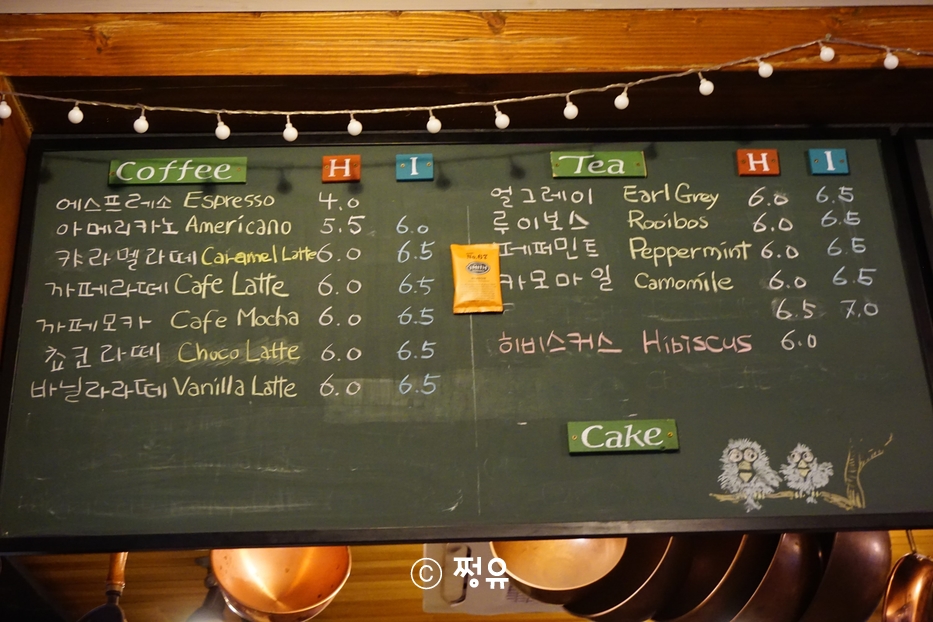 Coffee H I
에스프레소 Espresso 4.0
아메리카노 Americano 5.5 6.0
캬라멜라떼 Caramel Latte 6.0 6.5
까페라떼 Cafe Latte 6.0 6.5
까페모카 Cafe Mocha 6.0 6.5
쵸코라떼 Choco Latte 6.0 6.5
바닐라라떼 Vanilla Latte 6.0 6.5
Tea H I
얼그레이 Earl Grey 6.0 6.5
루이보스 Rooibos 6.0 6.5
페퍼민트 Peppermint 6.0 6.5
카모마일 Camomile 6.0 6.5
6.5 7.0
히비스커스 Hibiscus 6.0
Cake
© 쩡유